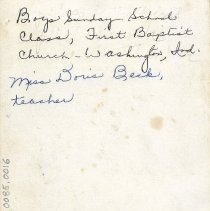 Boys Sunday School
Class, First Baptist
Church - Washington, Ind.
Miss Doris Beck,
teacher
0085.0016